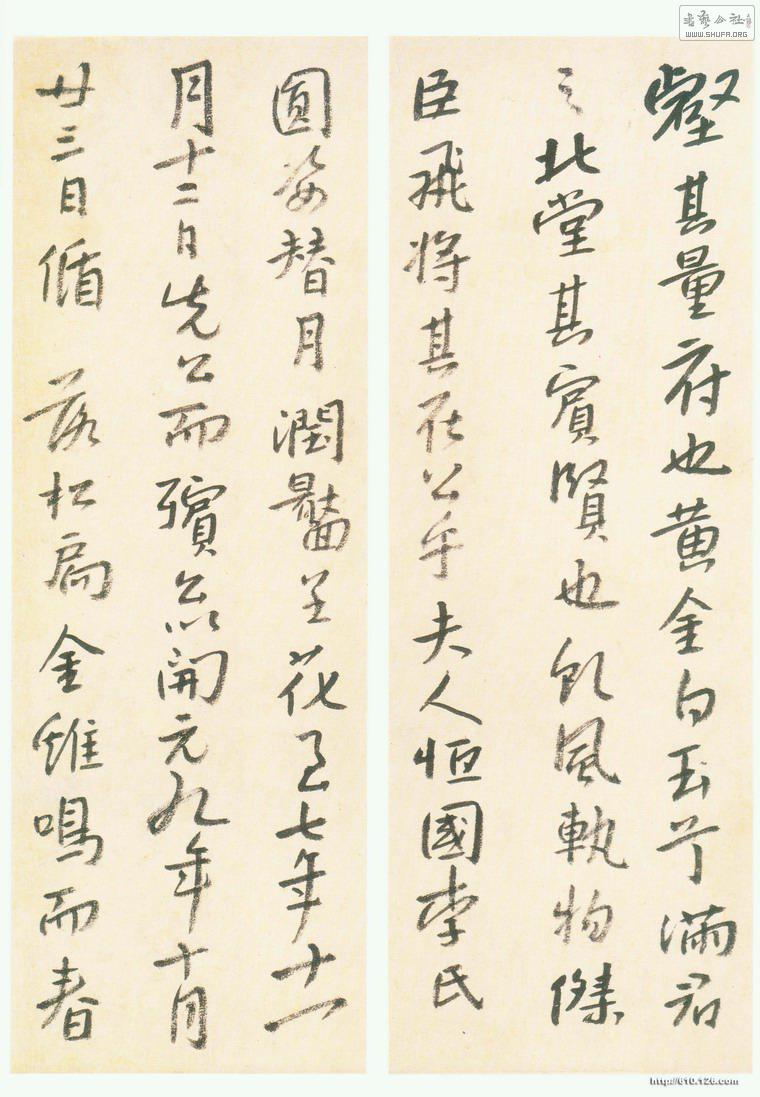 壑其量府也黄金白玉兮滿君
之北堂其賓賢也風執物傑
臣飛將其在公乎夫人恒國李氏
圓姿替月潤呈花七年十一
月十二日先公而開元九年十月
廿三日循 落松扃金雖鳴而春
書藝公社
WWW.SHUFA.ORG
http://610.126.com/